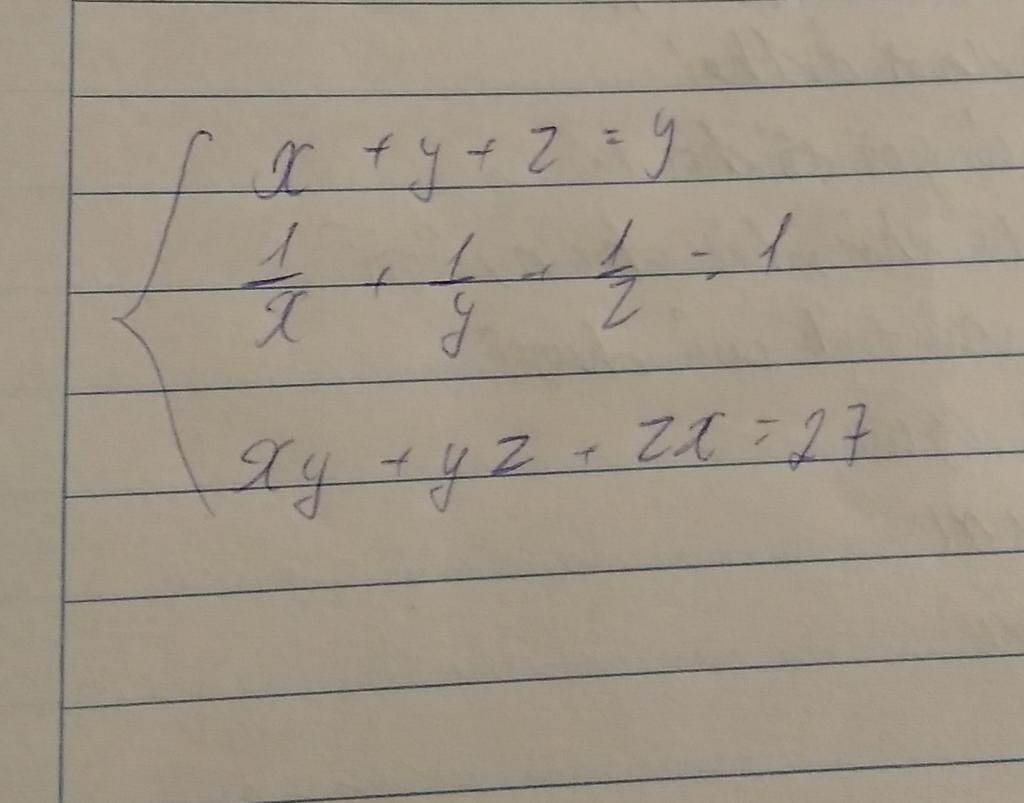 x + y + z = y
1/x + 1/y + 1/z = 1
xy + yz + zx = 27